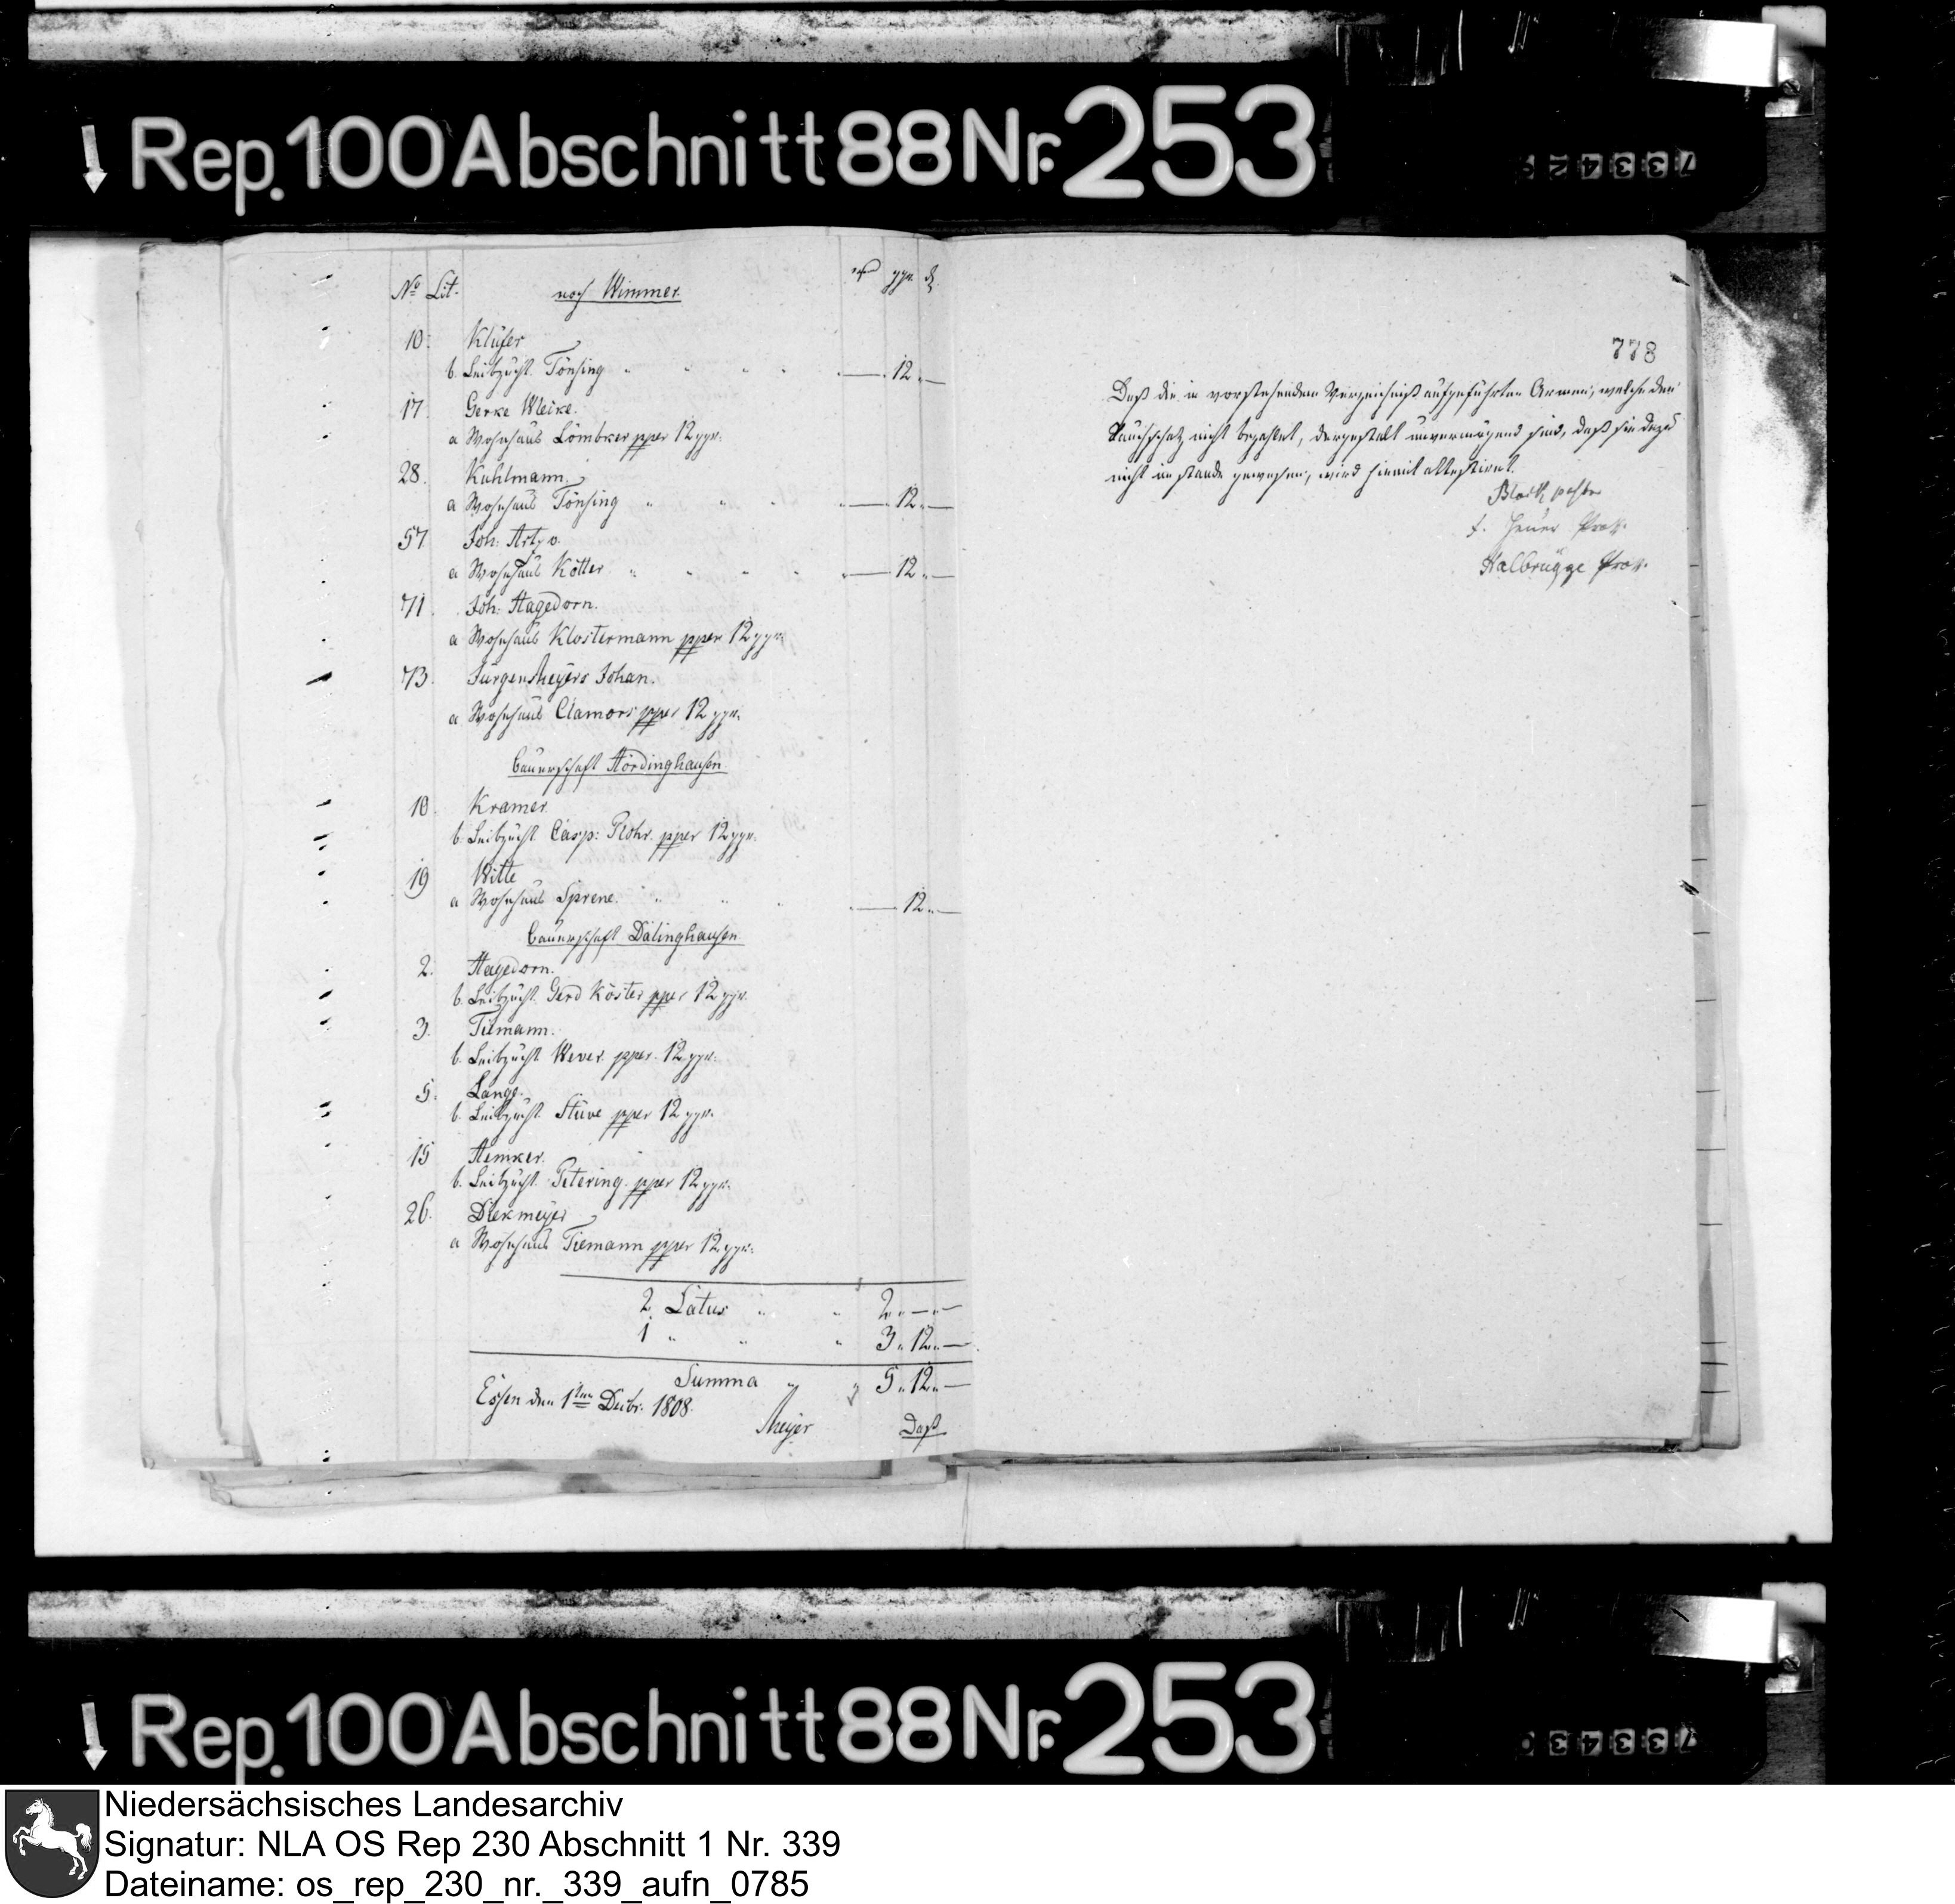 Rep. 100 Abschnitt 88 Nr. 253
73342
No Lit. noch Wimmer. ggr. d.
10. Klüfer
b. Leibzucht Tönsing 12
17. Gerke Weike.
a Wohnhaus Lömker pper 12 ggr.
28. Kuhlmann.
a Wohnhaus Tönsing 12
57 Joh:
a Wohnhaus Kötter 12
71. Joh: Hagedorn.
a Wohnhaus Klostermann pper 12 ggr.
73. Jürgen Meyers Johan.
a Wohnhaus Clamors pper 12 ggr.
Bauerschaft Hördinghausen.
10. Kramer
b. Leibzucht Casp: Rohr. pper 12 ggr.
19 Witte
a Wohnhaus Sprene. 12
Bauerschaft Dalinghausen
2. Hagedorn.
b. Leibzucht Gerd Köster pper 12 ggr.
3. Tiemann.
b. Leibzucht Wever. pper. 12 ggr.
5. Lange.
b. Leibzucht Stüve pper 12 ggr.
15 Hemker.
b. Leibzucht Petering. pper 12 ggr.
26. Diekmeyer
a Wohnhaus Tiemann pper 12 ggr.
2 Latus 2
1 " " 3 12
Summa 5 12
Essen den 1ten Decbr. 1808.
Meyer Daß
778
Daß die in vorstehendem Verzeichniß aufgeführten Armen, welche den
Rauchschatz nicht bezahlet, dergestalt unvermögend sind, daß sie dazu
nicht im stande gewesen, wird hiemit attestiret.
Block
Kalbrügge
Rep. 100 Abschnitt 88 Nr. 253
73343
Niedersächsisches Landesarchiv
Signatur: NLA OS Rep 230 Abschnitt 1 Nr. 339
Dateiname: os_rep_230_nr._339_aufn_0785